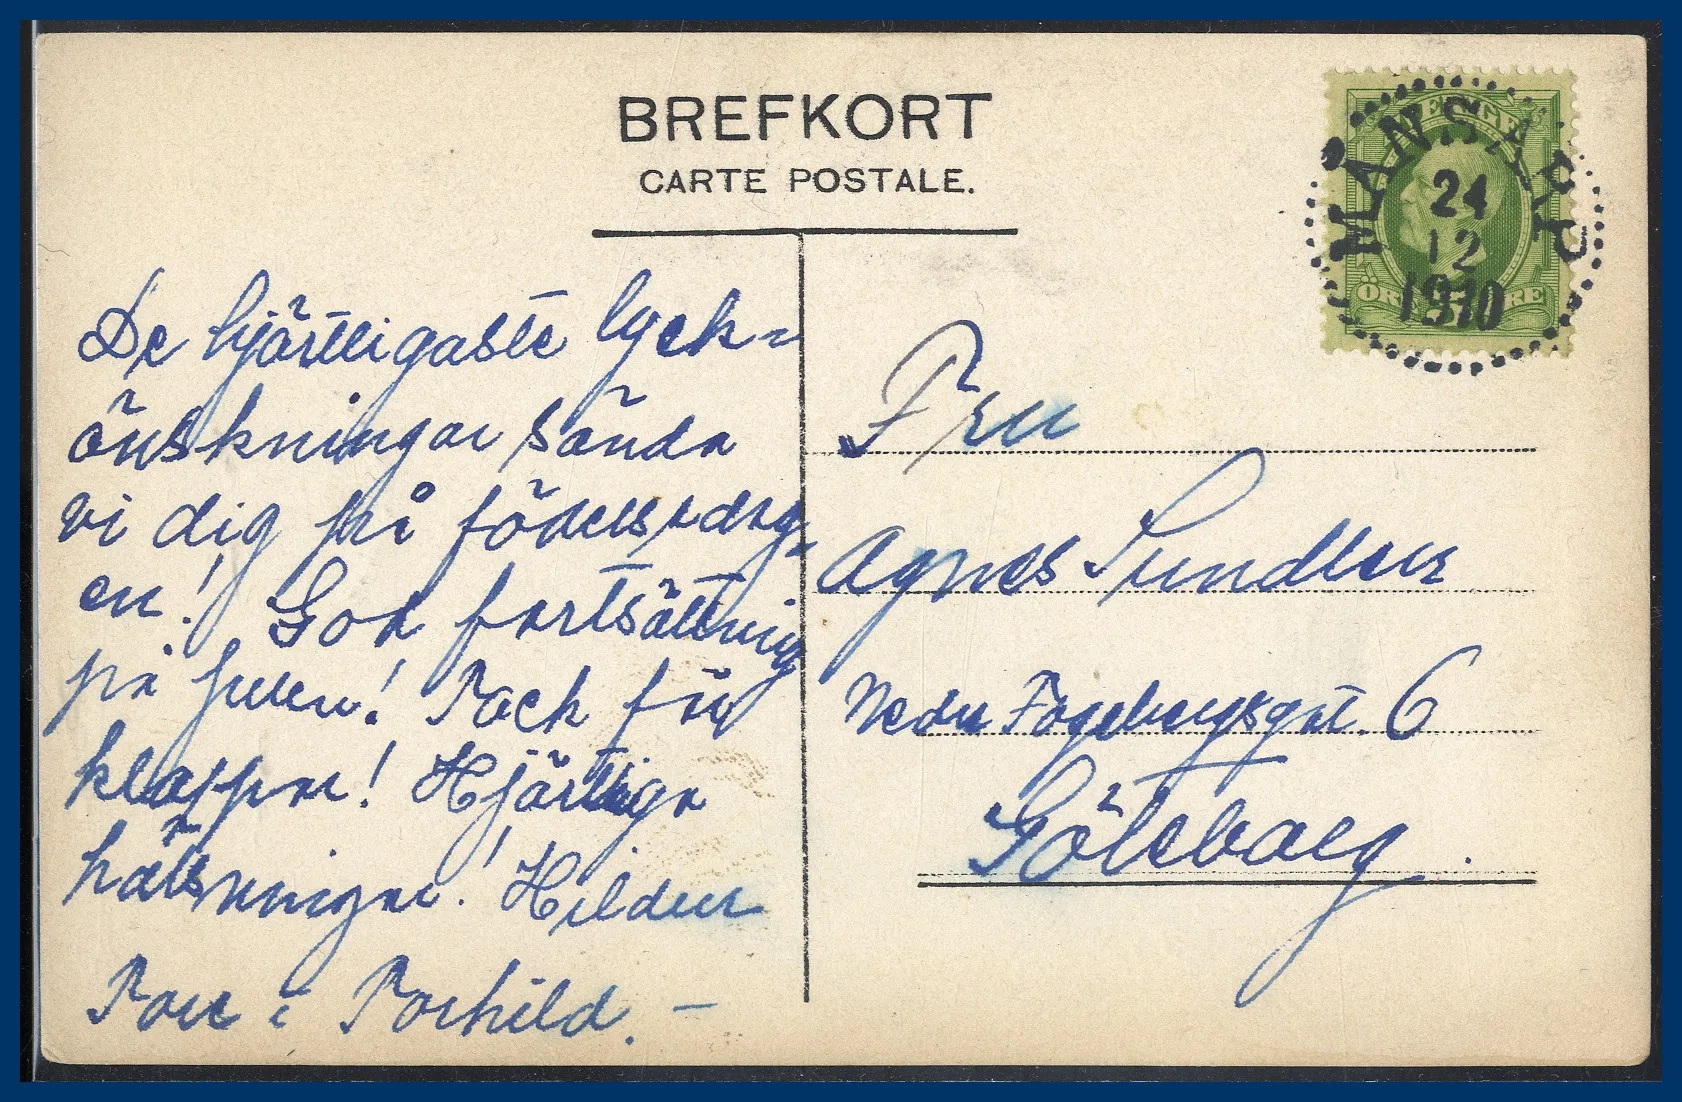 BREFKORT
CARTE POSTALE.
SVERIGE
MÅNSARP
24
12
1910
ÖRE
De hjärtligaste lyck=
önskningar sända
vi dig på födelsedag=
en! God fortsättning
på julen! Tack för
klappar! Hjärtliga
hälsningar! Hildur
Tore i Torhild. –
Fru
Agnes Sundler
Nedre Fogelbergsgat. 6
Göteborg.